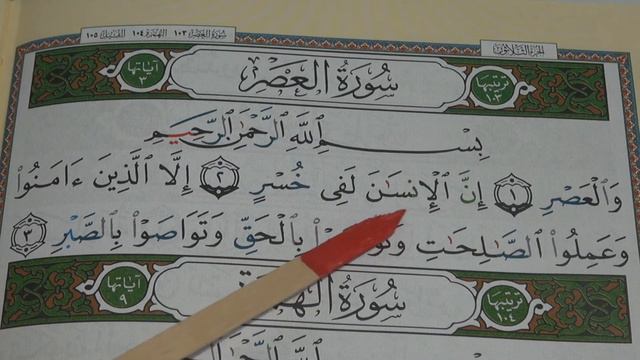 سورة العصر ١٠٣ الهمزة ١٠٤ الفيل ١٠٥
الجزء الثلاثون
ترتيبها ١٠٣
سُورَةُ العَصْرِ
آياتها ٣
بِسْمِ ٱللَّهِ ٱلرَّحْمَٰنِ ٱلرَّحِيمِ
وَٱلْعَصْرِ ١ إِنَّ ٱلْإِنسَٰنَ لَفِى خُسْرٍ ٢ إِلَّا ٱلَّذِينَ ءَامَنُوا۟
وَعَمِلُوا۟ ٱلصَّٰلِحَٰتِ بِٱلْحَقِّ وَتَوَاصَوْا۟ بِٱلصَّبْرِ ٣
ترتيبها ١٠٤
سُورَةُ
آياتها ٩